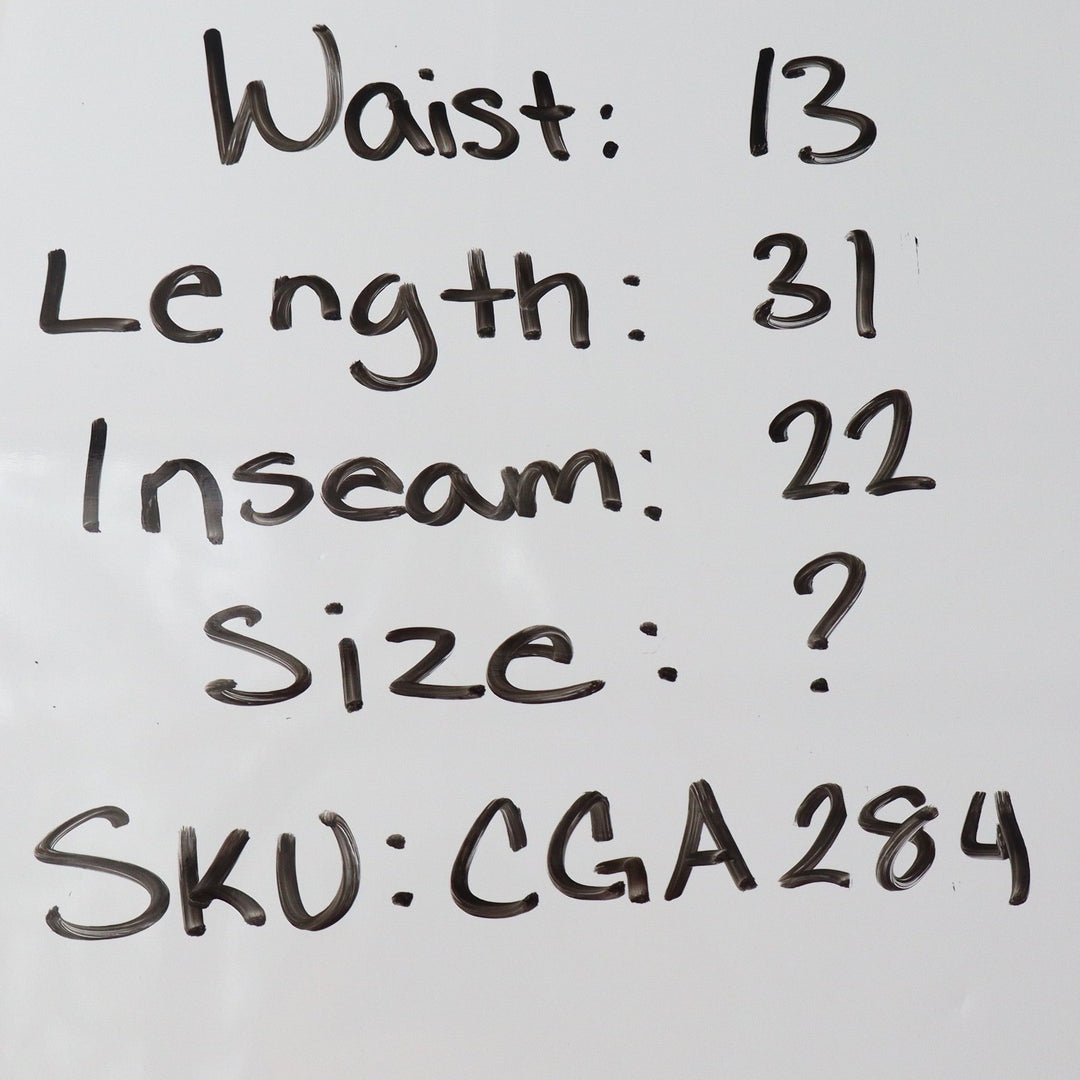 Waist: 13
Length: 31
Inseam: 22
Size: ?
SKU: CGA284